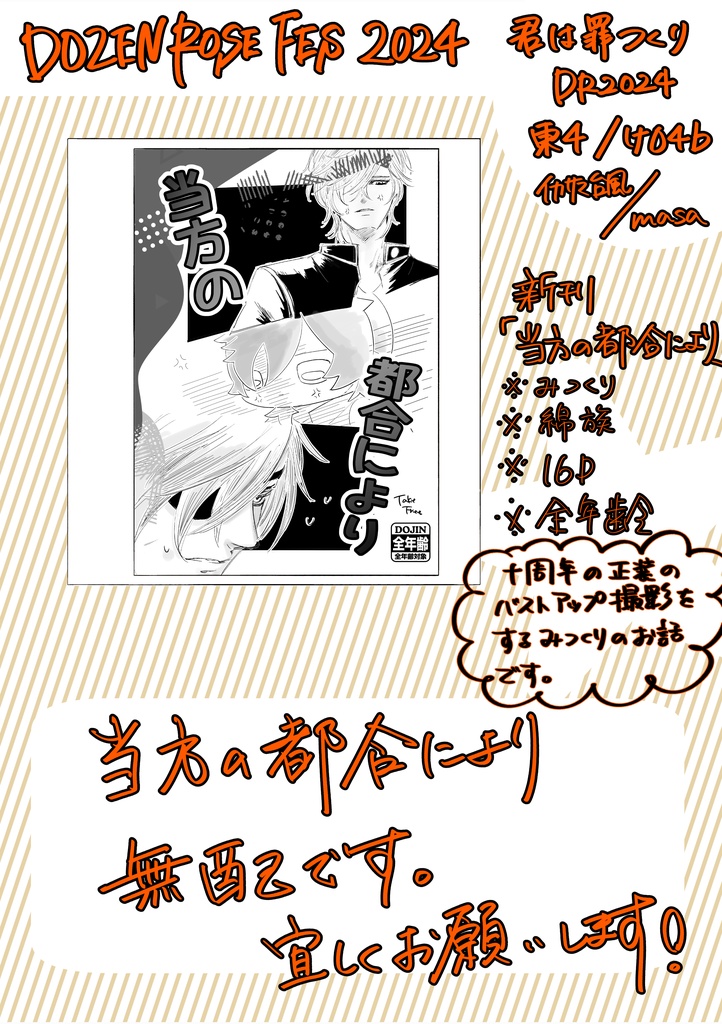 DOZEN ROSE FES 2024
君は罪つくり
DR2024
東4/け04b
イカサマ台風/masa
当方の
都合により
Take
Free
DOJIN
全年齢
全年齢対象
新刊
「当方の都合により」
※みつくり
※綿族
※16P
※全年齢
十周年の正装の
バストアップ撮影を
するみつくりのお話
です。
当方の都合により
無配です。
宜しくお願いします!